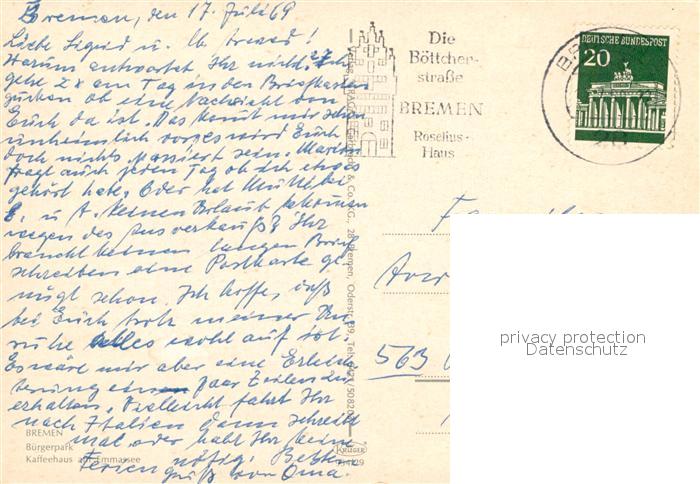 Bremen, den 17. Juli 69
Liebe Sigrid u.
Warum antwortet Ihr nicht? Ich
gehe 2x am Tag in den Briefkasten
gucken ob eine Nachricht von
Euch da ist. Das kommt mir schon
unheimlich vor, es wird Euch
doch nichts passiert sein.
fragt auch jeden Tag ob ich etwas
gehört habe. Oder hat
E. u. A. keinen Urlaub bekommen
wegen des Ausverkauf? Ihr
braucht keinen langen Brief
schreiben eine Postkarte ge-
nügt schon. Ich hoffe, daß
bei Euch trotz meiner Un-
ruhe alles wohl auf ist.
Es wäre mir aber eine Erleich-
terung ein paar Zeilen zu
erhalten. Vielleicht fahrt Ihr
nach Italien dann schreibt
mal oder habt Ihr keine
Ferien nötig. Besten
Gruß von Oma.
BREMEN
Bürgerpark
Kaffeehaus am Emmasee
KRÜGER
Die
Böttcher-
straße
BREMEN
Roselius-
Haus
DEUTSCHE BUNDESPOST
20
28 Bremen, Oderstr.
563
privacy protection
Datenschutz